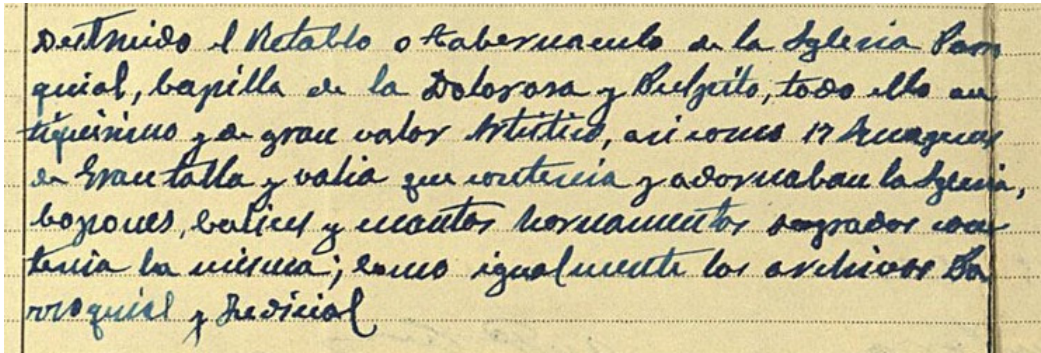 Destruido el Retablo o tabernaculo de la Yglesia Parro
quial, Capilla de la Dolorosa y Pulpito, todo ello an
tiquisimo y de gran valor Artistico, asi como 17 Imagenes
de Gran talla y valia que contenia y adornaban la Yglesia,
Copones, Calices y cuantos hornamentos sagrados con
tenia la misma; como igualmente los archivos Pa
rroquial y Judicial